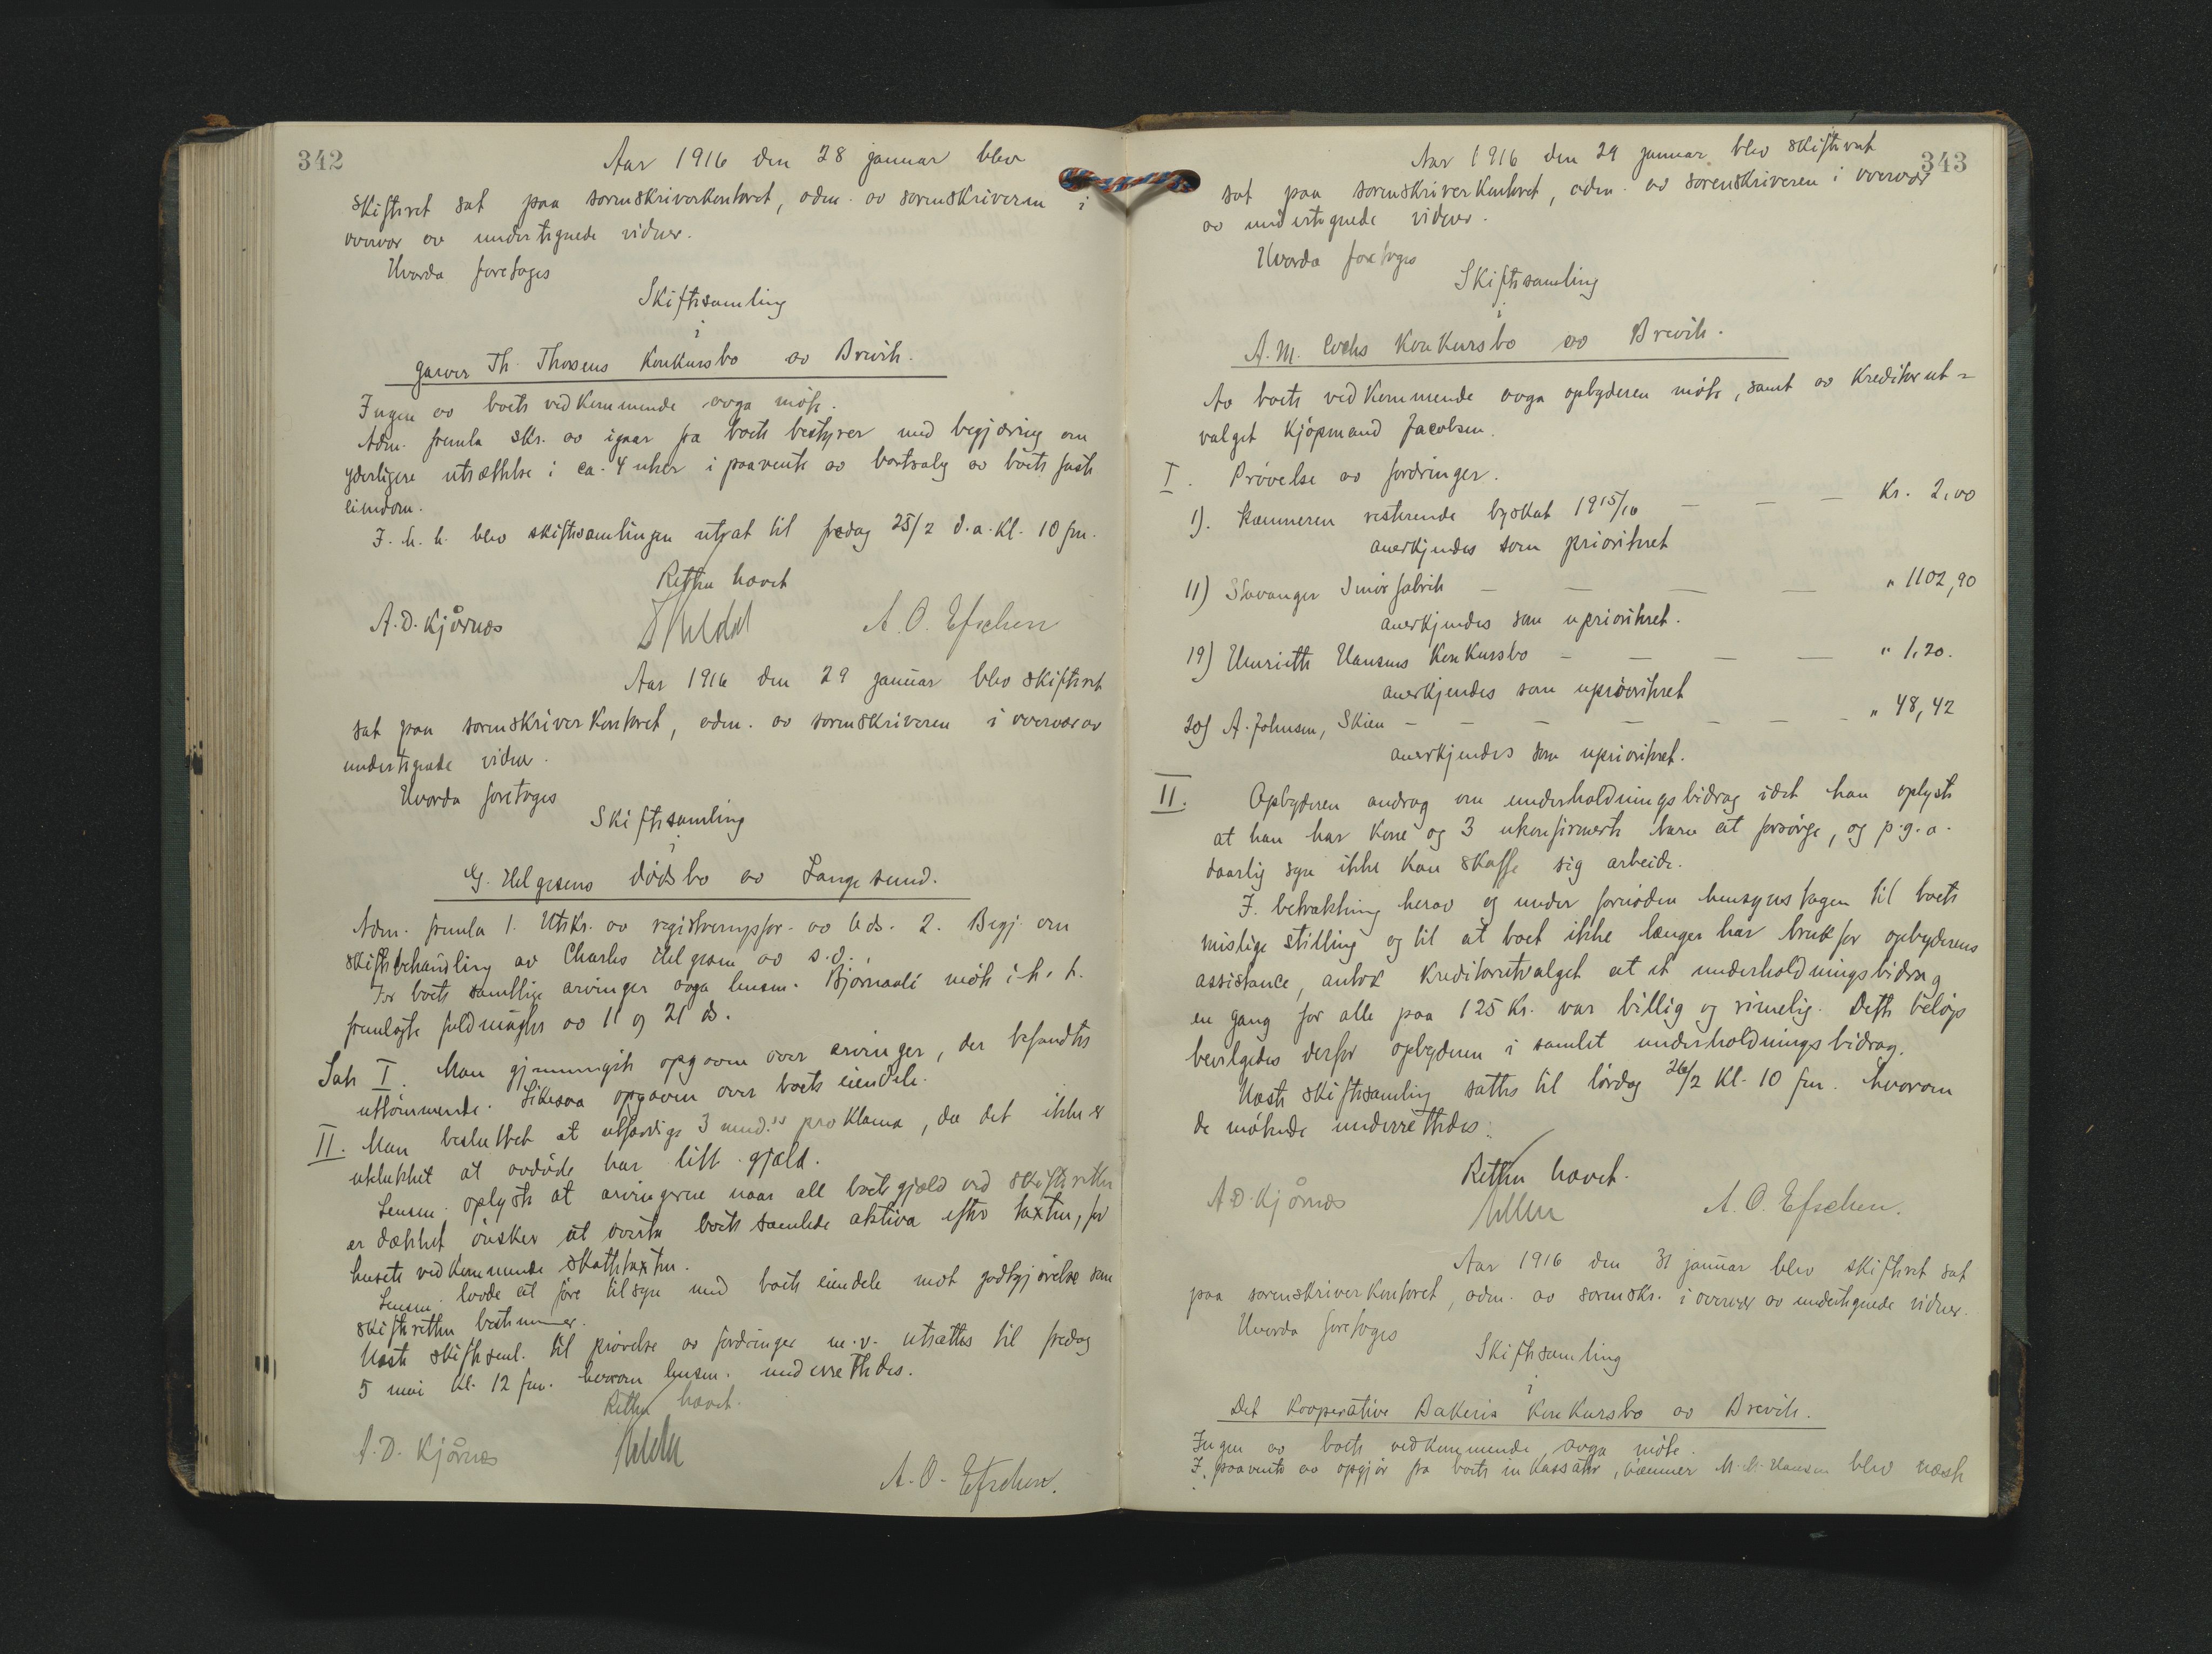 342
Aar 1916 den 28 januar blev
skifteret sat paa sorenskriverkontoret, adm. av sorenskriveren i
overvær av undertegnede vidner.
Hvorda foretoges
Skiftesamling
i
garver Th. Thosens Konkursbo av Brevik.
Ingen av boets vedkommende avga møte.
Adm. fremla skr. av igaar fra boets bestyrer med begjæring om
yderligere utsættelse i ca. 4 uker i paavente av bortsalg av boets faste
eiendom.
I. h. h. blev skiftesamlingen utsat til fredag 25/2 d.a. kl. 10 fm.
Retten hævet
A.D. Kjørnæs A. O. Efschen
Aar 1916 den 29 januar blev skifteret
sat paa sorenskriverkontoret, adm. av sorenskriveren i overvær av
undertegnede vidner.
Hvorda foretoges
Skiftesamling
i
G. Helgesens dødsbo av Langesund.
Adm. fremla 1. Utskr. av registreringsfor. av 6 ds. 2. Begj. om
skiftebehandling av Charles Helgesen av s.d.
For boets samtlige arvinger avga lensm. Bjørnaali møte i h. t.
fremlagte fuldmagter av 11 og 21 ds.
Sak I. Man gjennemgik opgaven over arvinger, der befandtes
uttømmende. Likesaa opgaven over boets eiendele.
II. Man besluttet at utfærdige 3 mnd.s proklama, da det ikke er
utelukket at avdøde har litt gjæld.
Lensm. oplyste at arvingerne naar all boets gjæld ved skifteretten
er dækket ønsker at overta boets samlede aktiva efter taxten, for
husets vedkommende skattetaxten.
Lensm. lovde at føre tilsyn med boets eiendele mot godtgjørelse som
skifteretten bestemmer.
Næste skiftesaml. til prøvelse av fordringer m.v. utsættes til fredag
5 mai kl. 12 fm. hvorom lensm. underrettedes.
Retten hævet.
A.D. Kjørnæs
A. O. Efschen.
343
Aar 1916 den 29 januar blev skifteret
sat paa sorenskriverkontoret, adm. av sorenskriveren i overvær
av undertegnede vidner.
Hvorda foretoges
Skiftesamling
i
A.M. Konkursbo av Brevik.
Av boets vedkommende avga opbyderen møte, samt av kreditorut=
valget kjøpmand Jacobsen.
I. Prøvelse av fordringer.
1). Kæmneren resterende byskat 1915/16 — — — Kr. 2,00
anerkjendes som prioriteret
11) Stavanger Smørfabrik — — — — " 1102,90
anerkjendes som uprioriteret.
19) Henriette Hansens Konkursbo — — — — " 1,20.
anerkjendes som uprioriteret
20) A. Johnsen, Skien — — — — — — — " 48,42
anerkjendes som uprioriteret.
II. Opbyderen androg om underholdningsbidrag idet han oplyste
at han har kone og 3 ukonfirmerte barn at forsørge, og p.g.a.
daarlig syn ikke kan skaffe sig arbeide.
I. betraktning herav og under fornøden hensynstagen til boets
mislige stilling og til at boet ikke længer har bruk for opbyderens
assistance, antok kreditorutvalget at et underholdningsbidrag
en gang for alle paa 125 kr. var billig og rimelig. Dette beløp
bevilgedes derfor opbyderen i samlet underholdningsbidrag.
Næste skiftesamling sattes til lørdag 26/2 kl. 10 fm. hvorom
de møtende underrettedes.
Retten hævet.
A.D. Kjørnæs A. O. Efschen.
Aar 1916 den 31 januar blev skifteret sat
paa sorenskriverkontoret, adm. av sorenskr. i overvær av undertegnede vidner.
Hvorda foretoges
Skiftesamling
i
Det Kooperative Bakeris Konkursbo av Brevik.
Ingen av boets vedkommende avga møte.
I. paavente av opgjør fra boets inkassator, kæmner M. Hansen blev næste